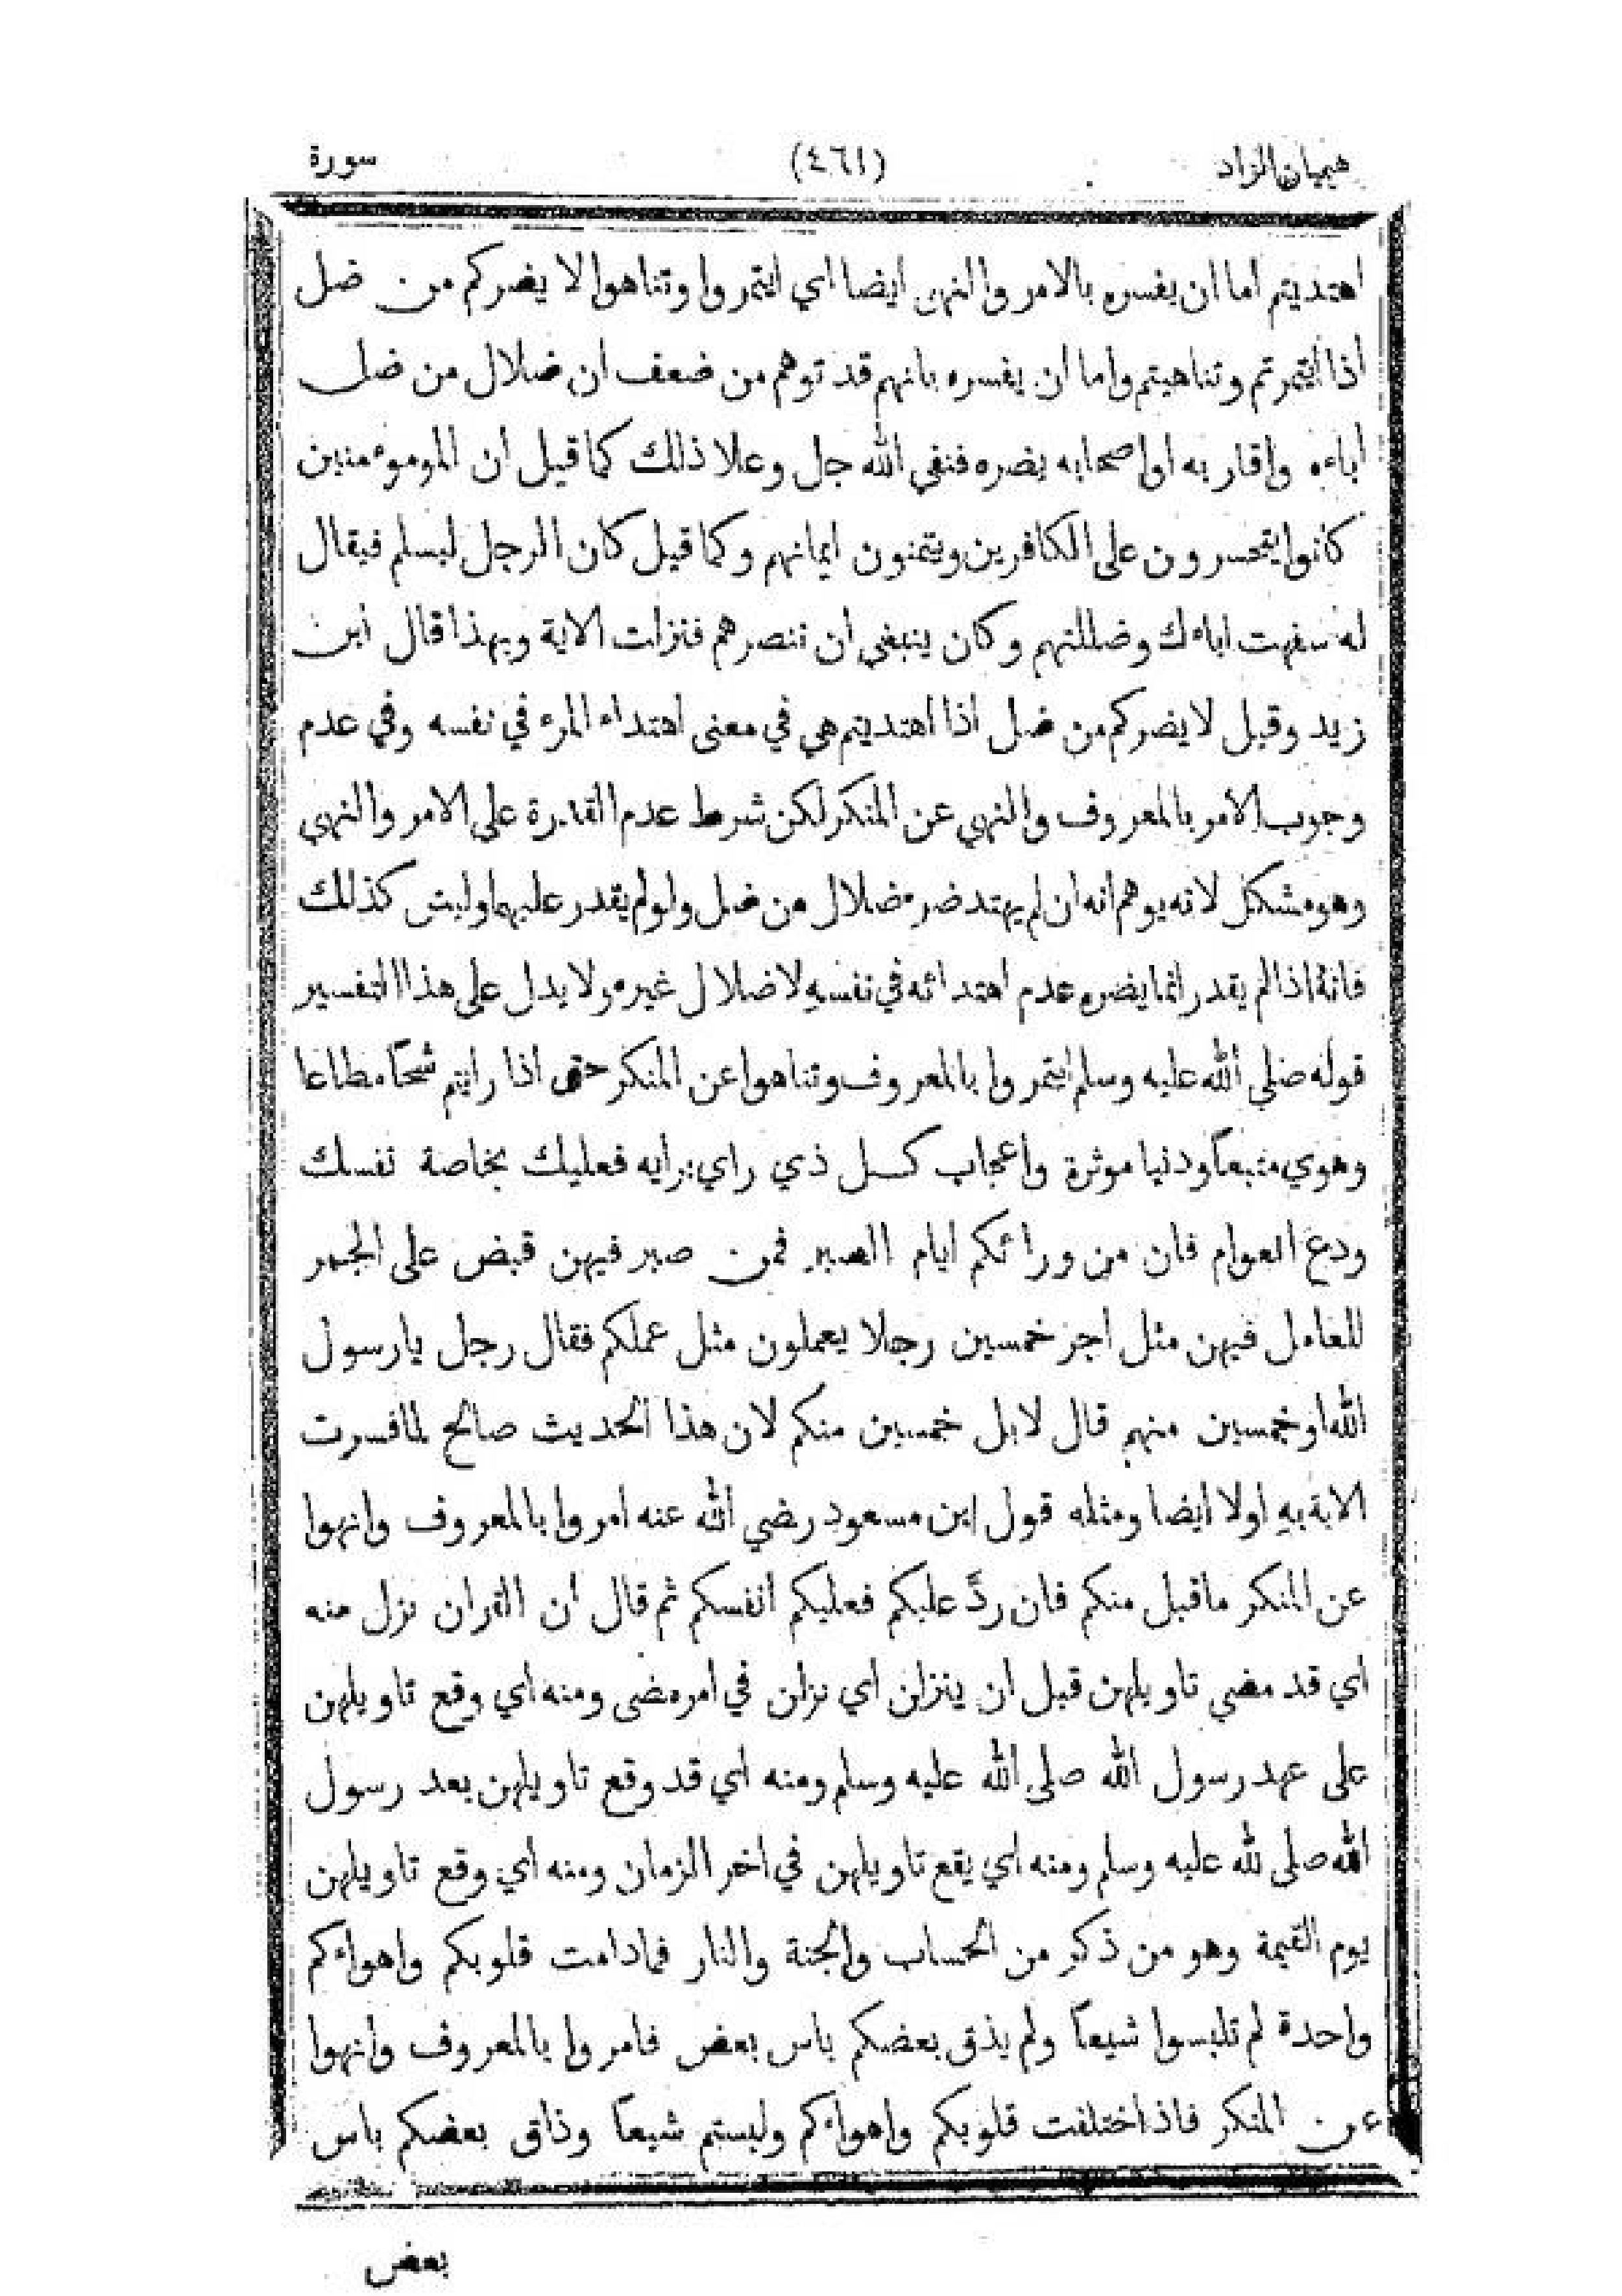 هيميان الزاد (٤٦١) سورة
اهتديتم اما ان يفسره بالامر والنهى ايضا اي ايتمروا وتناهوا لا يضركم من ضل
اذا ايتمرتم وتناهيتم واما ان يفسره بانهم قد توهم من ضعف ان ضلال من ضل
اباءه واقاربه او اصحابه يضره فنفي الله جل وعلا ذلك كما قيل ان الموموءمنين
كانوا يتحسرون على الكافرين ويتمنون ايمانهم وكما قيل كان الرجل ليسلم فيقال
له سفهت اباءك وضللتهم وكان ينبغي ان تنصرهم فنزلت الاية وبهذا قال ابن
زيد وقيل لا يضركم من ضل اذا اهتديتم هي في معنى اهتداء المرء في نفسه وفي عدم
وجوب الامر بالمعروف والنهي عن المنكر لكن شرط عدم القدرة على الامر والنهي
وهو مشكل لانه يوهم انه ان لم يهتد ضره ضلال من ضل ولو لم يقدر عليهما وليس كذلك
فانه اذا لم يقدر انما يضره عدم اهتدائه في نفسه لا ضلال غيره ولا يدل على هذا التفسير
قوله صلي الله عليه وسلم ايتمروا بالمعروف وتناهوا عن المنكر حتى اذا رايتم شحًا مطاعا
وهوي متبعًا ودنيا موثرة واعجاب كل ذي راي برايه فعليك بخاصة نفسك
ودع العوام فان من ورائكم ايام الصبر فمن صبر فيهن قبض على الجمر
للعامل فيهن مثل اجر خمسين رجلا يعملون مثل عملكم فقال رجل يا رسول
الله او خمسين منهم قال لا بل خمسين منكم لان هذا الحديث صالح لما فسرت
الاية به اولا ايضا ومثله قول ابن مسعود رضي الله عنه امروا بالمعروف وانهوا
عن المنكر ما قبل منكم فان ردّ عليكم فعليكم انفسكم ثم قال ان القران نزل منه
اي قد مضي تاويلهن قبل ان ينزلن اي نزلن في امر مضى ومنه اي وقع تاويلهن
على عهد رسول الله صلى الله عليه وسلم ومنه اي قد وقع تاويلهن بعد رسول
الله صلى لله عليه وسلم ومنه اي يقع تاويلهن في اخر الزمان ومنه اي وقع تاويلهن
يوم القيمة وهو من ذكر من الحساب والجنة والنار فمادامت قلوبكم واهواءكم
واحدة لم تلبسوا شيعاً ولم يذق بعضكم باس بعض فامروا بالمعروف وانهوا
عن المنكر فاذ اختلفت قلوبكم واهواءكم ولبستم شيعاً وذاق بعضكم باس
بعض